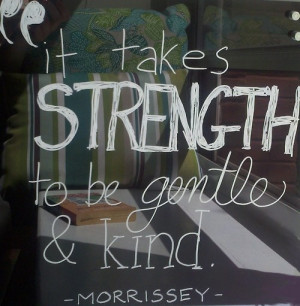 “it takes
STRENGTH
to be gentle
& kind.
- MORRISSEY -